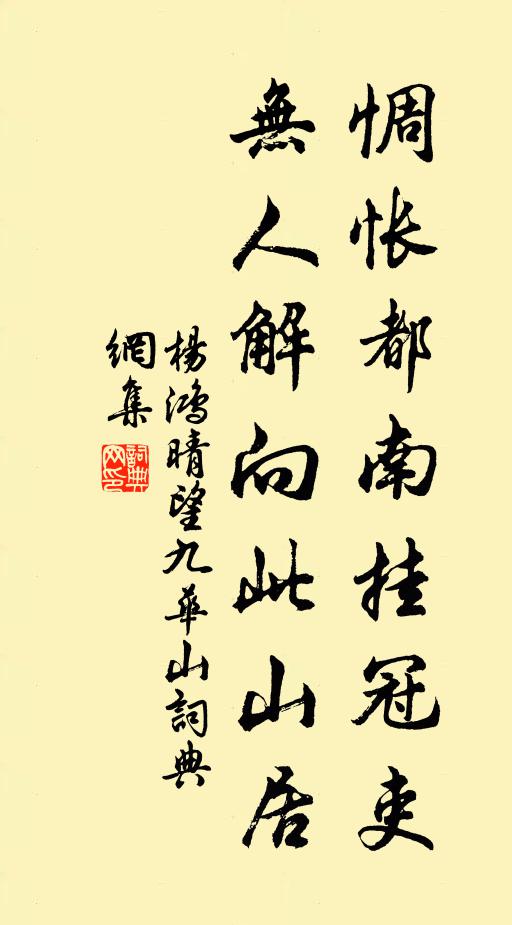 惆怅都南挂冠吏
無人解向此山居
楊鴻晴望九華山詞典
網集
詞典網印